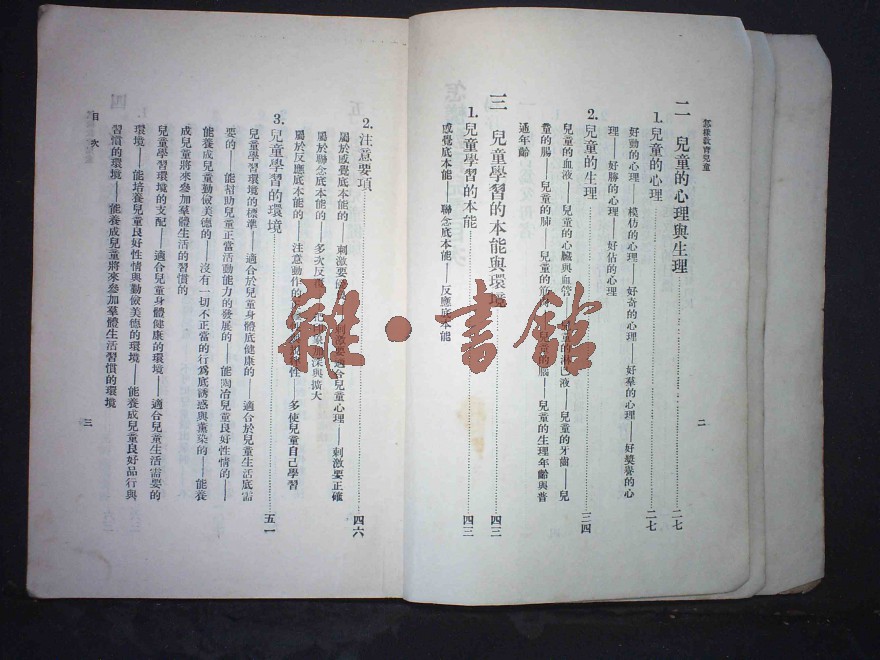 怎樣教育兒童
二
二 兒童的心理與生理……二七
1. 兒童的心理……二七
好動的心理——模仿的心理——好奇的心理——好羣的心理——好獎譽的心
理——好勝的心理——好佔的心理
2. 兒童的生理……三四
兒童的血液——兒童的心臟與血管——兒童的淋巴液——兒童的牙齒——兒
童的腸——兒童的肺——兒童的筋——兒童的腦——兒童的生理年齡與普
通年齡
三 兒童學習的本能與環境……四三
1. 兒童學習的本能……四三
感覺底本能——聯念底本能——反應底本能
2. 注意要項……四六
屬於感覺底本能的——刺激要——刺激要適合兒童心理——刺激要正確
屬於聯念底本能的——多次反復——加深與擴大
屬於反應底本能的——注意動作的——性——多使兒童自己學習
3. 兒童學習的環境……五一
兒童學習環境的標準——適合於兒童身體底健康的——適合於兒童生活底需
要的——能幫助兒童正當活動能力的發展的——能陶冶兒童良好性情的——
能養成兒童勤儉美德的——沒有一切不正當的行爲底誘惑與薰染的——能養
成兒童將來參加羣體生活的習慣的
兒童學習環境的支配——適合兒童身體健康的環境——適合兒童生活需要的
環境——能培養兒童良好性情與勤儉美德的環境——能養成兒童良好品行與
習慣的環境——能養成兒童將來參加羣體生活習慣的環境
目次
三
雜·書館